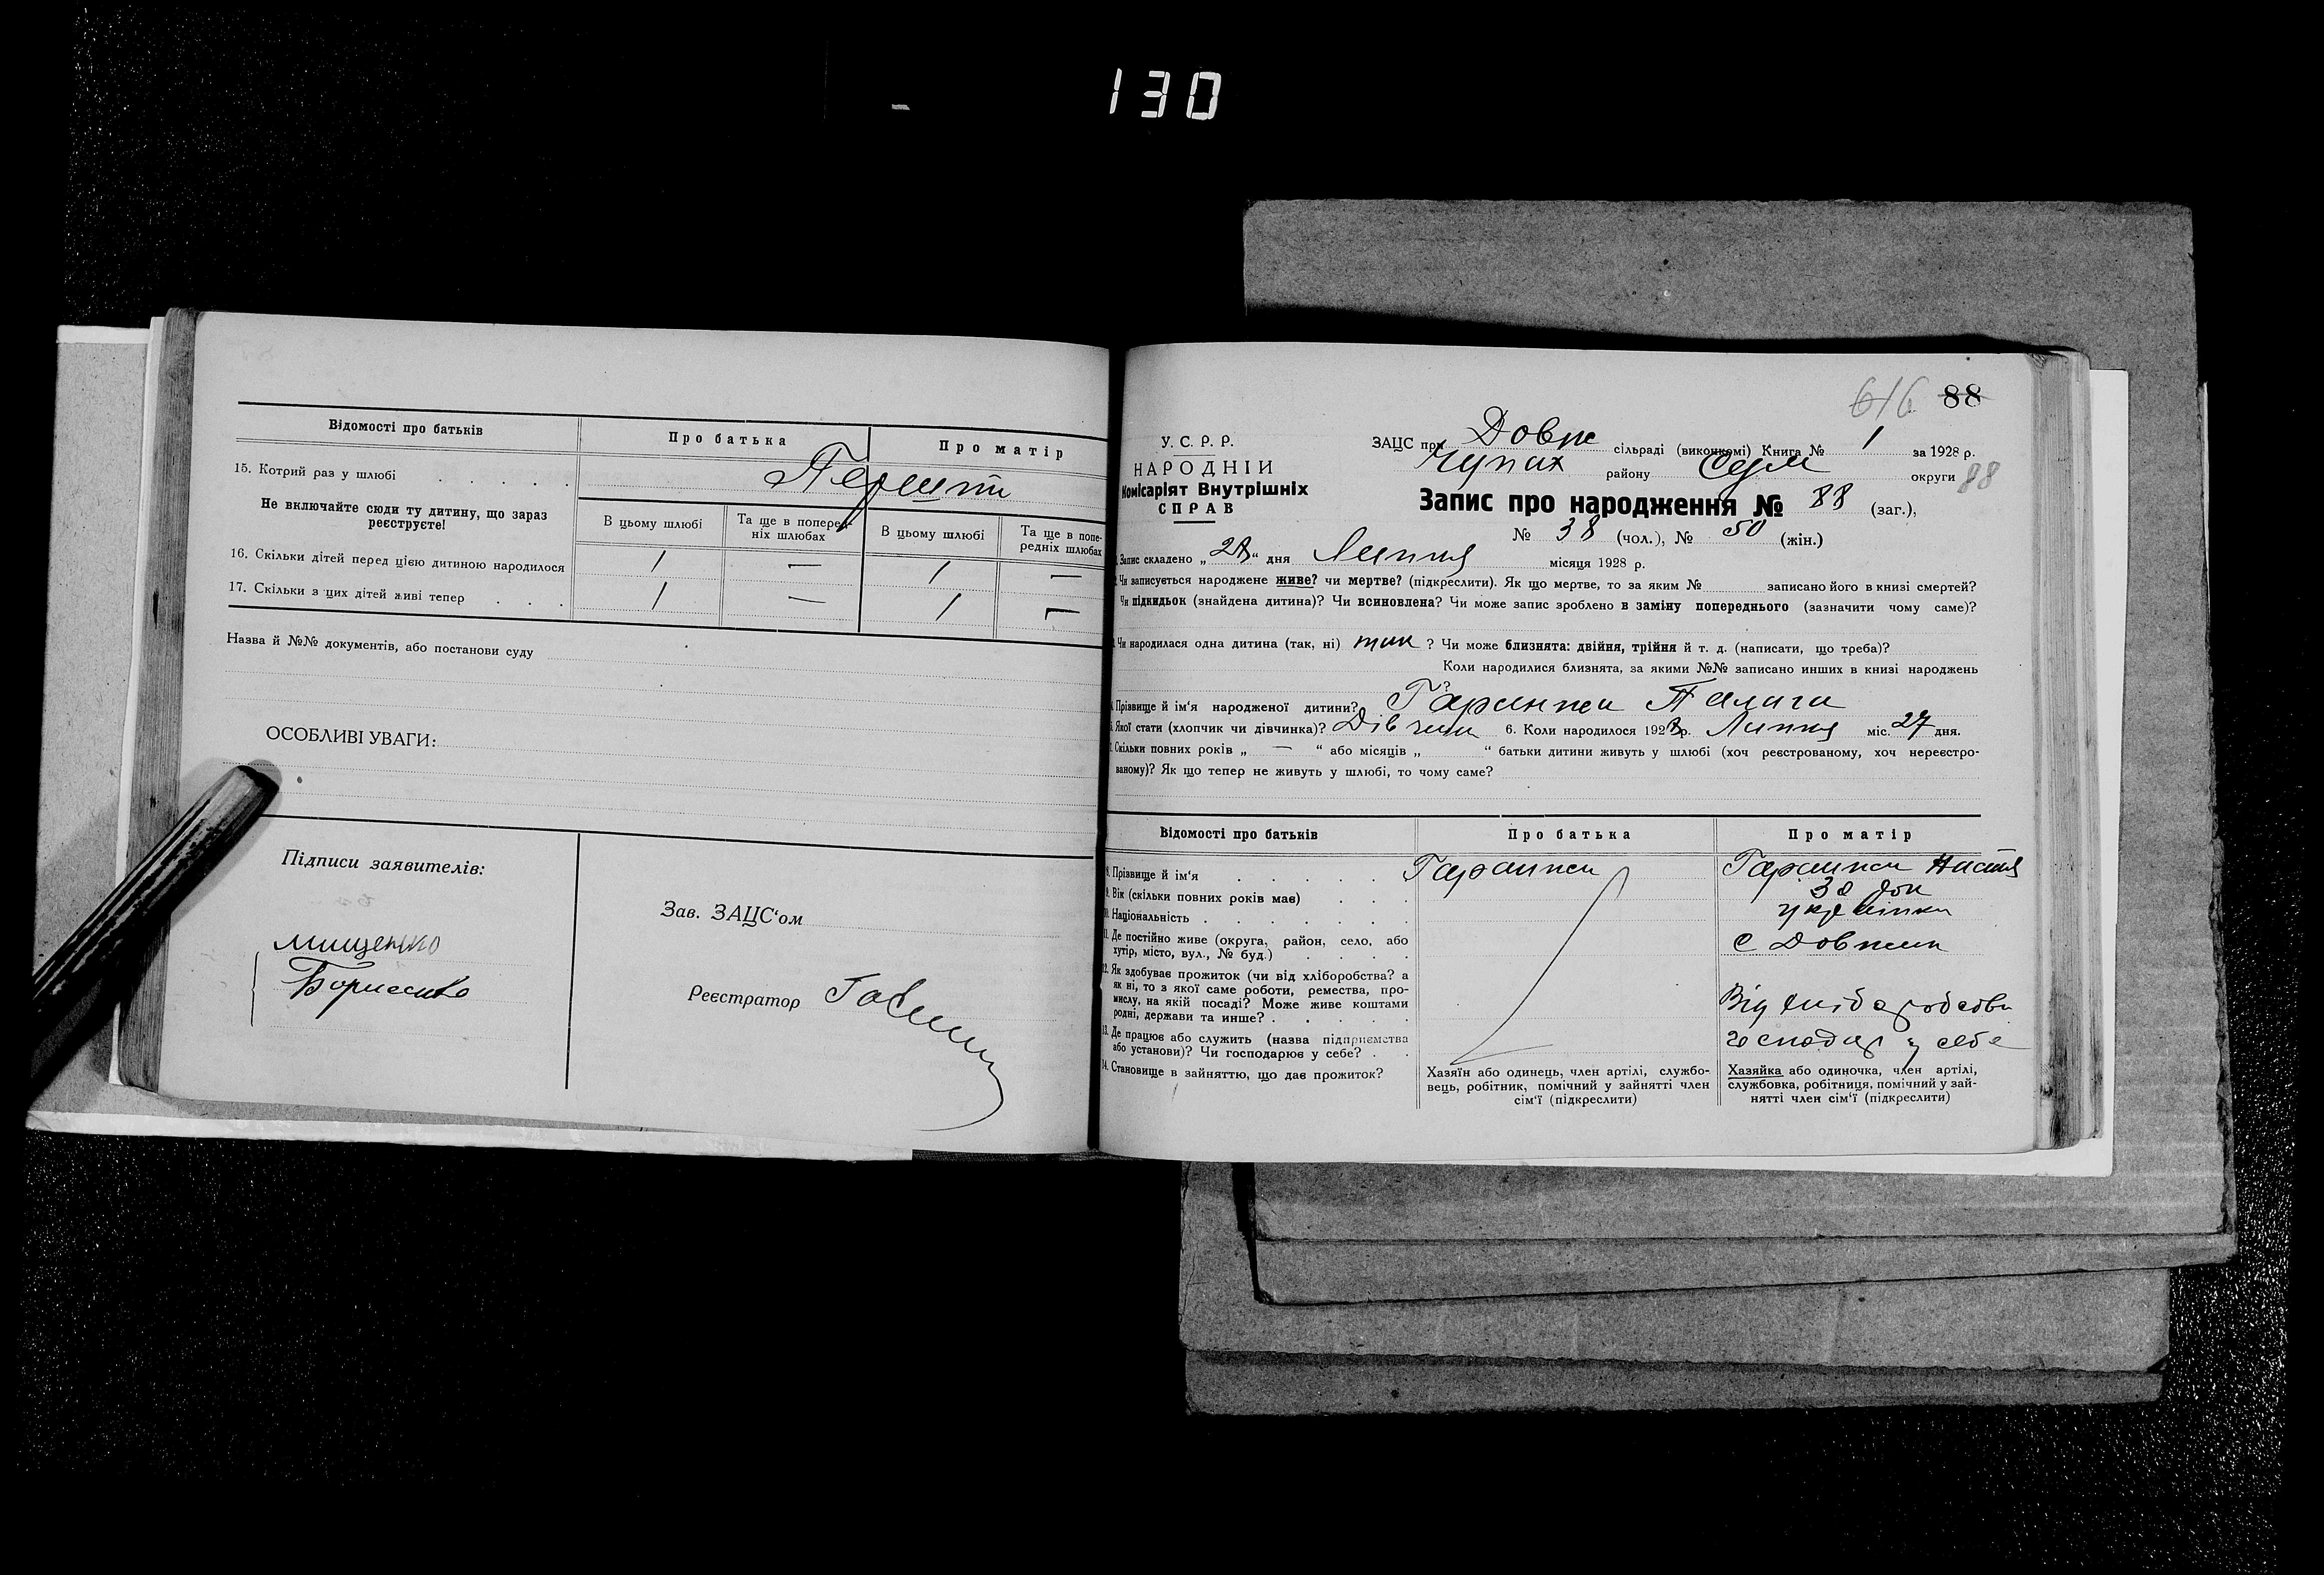 130
Відомості про батьків
Про батька
Про матір
15. Котрий раз у шлюбі
Не включайте сюди ту дитину, що зараз
реєструєте!
В цьому шлюбі
Та ще в поперед-
ніх шлюбах
В цьому шлюбі
Та ще в попе-
редніх шлюбах
16. Скільки дітей перед цією дитиною народилося 1 — 1 —
17. Скільки з цих дітей живі тепер 1 — 1 —
Назва й №№ документів, або постанови суду
ОСОБЛИВІ УВАГИ:
Підписи заявителів:
Мищенко
Борисенко
Зав. ЗАЦС'ом
Реєстратор
616 88
У. С. Р. Р.
НАРОДНІЙ
Комісаріят Внутрішніх
СПРАВ
ЗАЦС при Довж сільраді (виконкомі) Книга № 1 за 1928 р.
Чупах району округи 88
Запис про народження № 88 (заг.),
№ 38 (чол.), № 50 (жін.)
1. Запис складено „28“ дня Липня місяця 1928 р.
2. Чи записується народжене живе? чи мертве? (підкреслити). Як що мертве, то за яким № записано його в книзі смертей?
Чи підкидьок (знайдена дитина)? Чи всиновлена? Чи може запис зроблено в заміну попереднього (зазначити чому саме)?
3. Чи народилася одна дитина (так, ні) так ? Чи може близнята: двійня, трійня й т. д. (написати, що треба)?
Коли народилися близнята, за якими №№ записано инших в книзі народжень
?
4. Прізвище й ім'я народженої дитини? Гаранжа Палага
5. Якої стати (хлопчик чи дівчинка)? Дівчина 6. Коли народилося 1928 р. Липня міс. 27 дня.
7. Скільки повних років „ — “ або місяців „ “ батьки дитини живуть у шлюбі (хоч реєстрованому, хоч нереєстро-
ваному)? Як що тепер не живуть у шлюбі, то чому саме?
Відомості про батьків
Про батька
Про матір
8. Прізвище й ім'я Гаранжа Гаранжа Настя
9. Вік (скільки повних років має)
10. Національність українка
11. Де постійно живе (округа, район, село, або
хутір, місто, вул., № буд.) С Довжик
12. Як здобуває прожиток (чи від хліборобства? а
як ні, то з якої саме роботи, ремества, про-
мислу, на якій посаді? Може живе коштами
родні, держави та инше? Від хліборобства
13. Де працює або служить (назва підприємства
або установи)? Чи господарює у себе? господар у себе
14. Становище в зайняттю, що дає прожиток?
Хазяїн або одинець, член артілі, службо-
вець, робітник, помічний у зайнятті член
сім'ї (підкреслити)
Хазяйка або одиночка, член артілі,
службовка, робітниця, помічний у зай-
нятті член сім'ї (підкреслити)